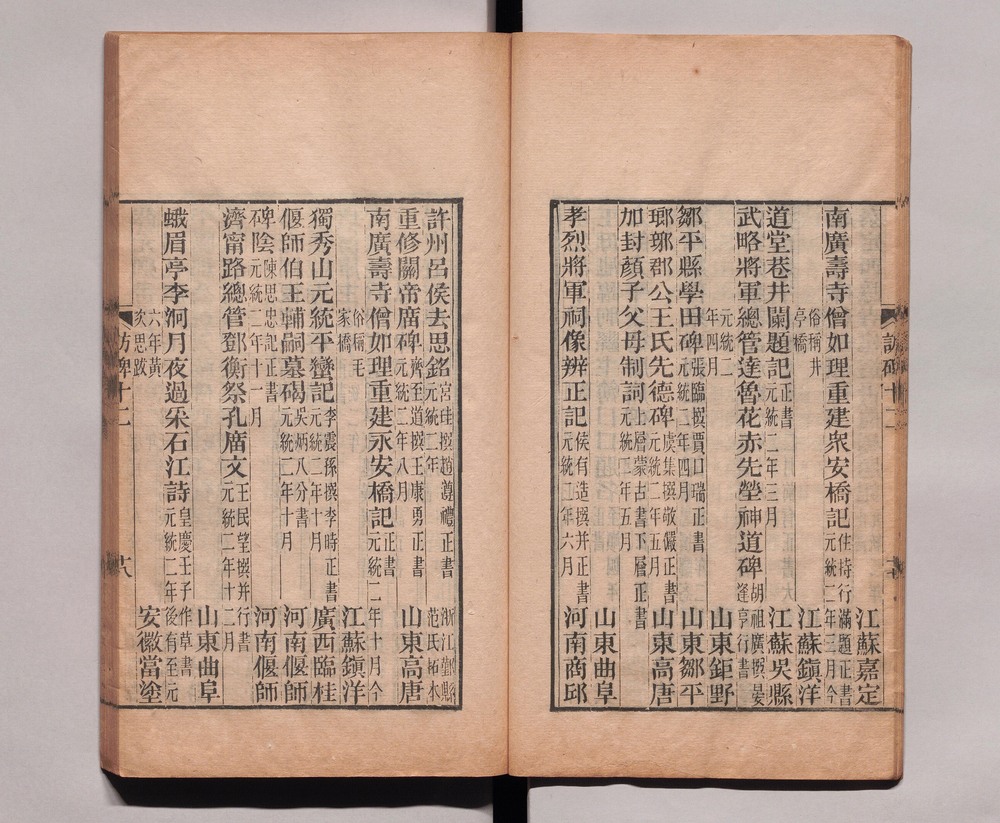 江蘇嘉定
南廣壽寺僧如理重建衆安橋記住持行滿題正書
元統二年三月今
俗稱井
亭橋
江蘇鎭洋
道堂巷井闌題記正書
元統二年三月
江蘇吳縣
武略將軍總管達魯花赤先塋神道碑胡祖廣撰晏
逢亨行書
元統二
年四月
山東鉅野
鄒平縣學田碑張臨撰賈口瑞正書
元統二年四月
山東鄒平
瑯琊郡公王氏先德碑虞集撰敬儼正書
元統二年五月
山東高唐
加封顏子父母制詞上層蒙古書下層正書
元統二年五月
山東曲阜
孝烈將軍祠像辨正記侯有造撰并正書
元統二年六月
河南商邱
許州呂侯去思銘宮珪撰趙遵禮正書
元統二年
浙江鄞縣
范氏拓本
重修關帝廟碑至道撰王康勇正書
元統二年八月
山東高唐
南廣壽寺僧如理重建永安橋記正書
元統二年十月今
俗稱毛
家橋
江蘇鎭洋
獨秀山元統平蠻記李震孫撰李時正書
元統二年十月
廣西臨桂
偃師伯王輔嗣墓碣吳炳八分書
元統二年十月
河南偃師
碑陰陳思忠記正書
元統二年十一月
河南偃師
濟甯路總管鄧衡祭孔廟文王民望撰并行書
元統二年十二月
山東曲阜
蛾眉亭李洞月夜過采石江詩皇慶壬子作草書
元統二年後有至元
六年黃
次思跋
安徽當塗
訪碑十二